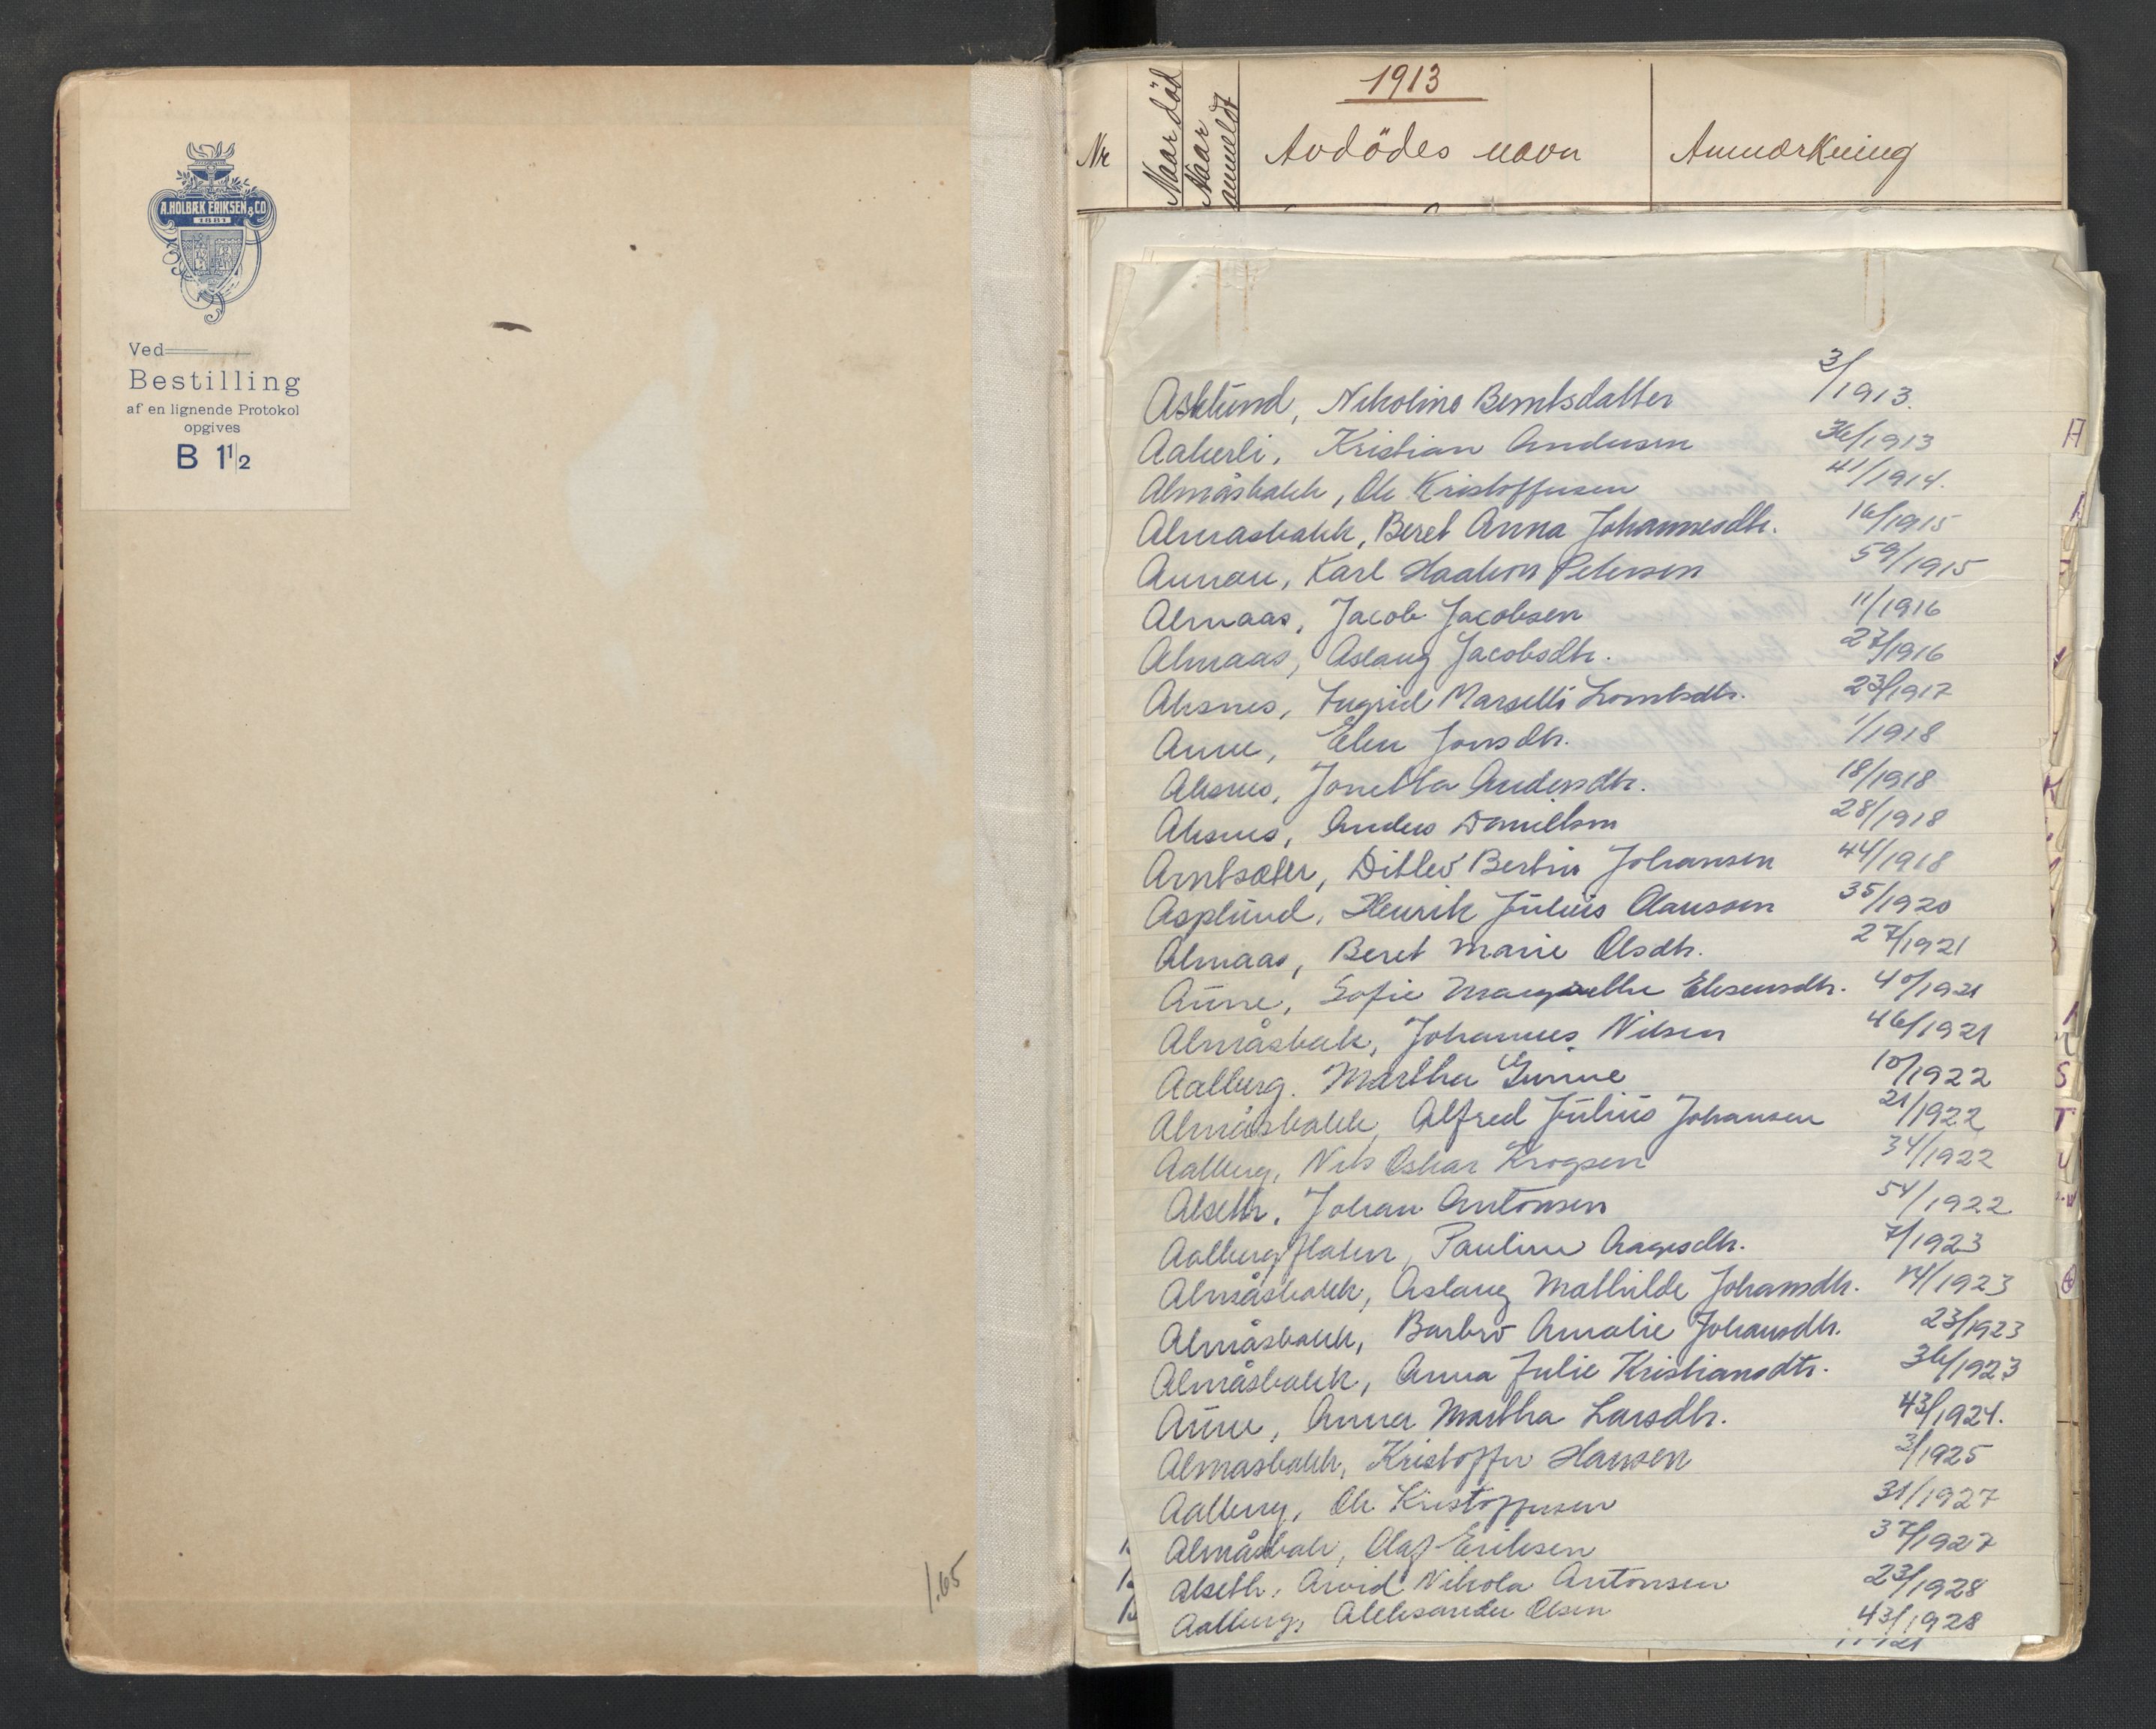 A. HOLBÆK ERIKSEN & CO
1881
Ved
Bestilling
af en lignende Protokol
opgives
B 1 1/2
1.65
1913
Nr
Naar död
Naar anmeldt
Avdödes navn
Anmerkning
Asklund, Nikoline Berntsdatter 3/1913.
Aakerli, Kristian Andersen 36/1913
Almåsbakk, Ole Kristoffersen 41/1914.
Almasbakk, Beret Anna Johannesdtr. 16/1915
Aunan, Karl Haakon Petersen 59/1915
Almaas, Jacob Jacobsen 11/1916
Almaas, Aslaug Jacobsdtr. 27/1916
Aksnes, Ingrid Marselli Lorntsdtr. 23/1917
Aune, Elen Jonsdtr. 1/1918
Aksnes, Jonetta Andersdtr. 18/1918
Aksnes, Anders Daniellsen 28/1918
Arntsæter, Ditlev Bertin Johansen 44/1918
Asplund, Henrik Julius Claussen 35/1920
Almaas, Beret Marie Olsdtr. 27/1921
Aune, Sofie Margrethe Ellevsdtr. 40/1921
Almåsbak, Johannes Nilsen 46/1921
Aalberg. Martha Gunne 10/1922
Almåsbakk, Alfred Julius Johansen 21/1922
Aalberg, Nils Oskar Krogsen 34/1922
Alseth, Johan Antonsen 54/1922
Aalberg, Pauline Aagesdtr. 7/1923
Almåsbakk, Aslaug Mathilde Johansdtr. 14/1923
Almåsbakk, Barbro Amalie Johansdtr. 23/1923
Almåsbakk, Anna Julie Kristiansdtr. 36/1923
Aune, Anna Martha Larsdtr. 43/1924.
Almasbakk, Kristoffer Hansen 3/1925
Aalberg, Ole Kristoffersen 31/1927
Almåsbak, Olaf Eriksen 37/1927
Alseth, Arvid Nikolai Antonsen 23/1928
Aalberg, Aleksander Olsen 43/1928
A
S
T
U